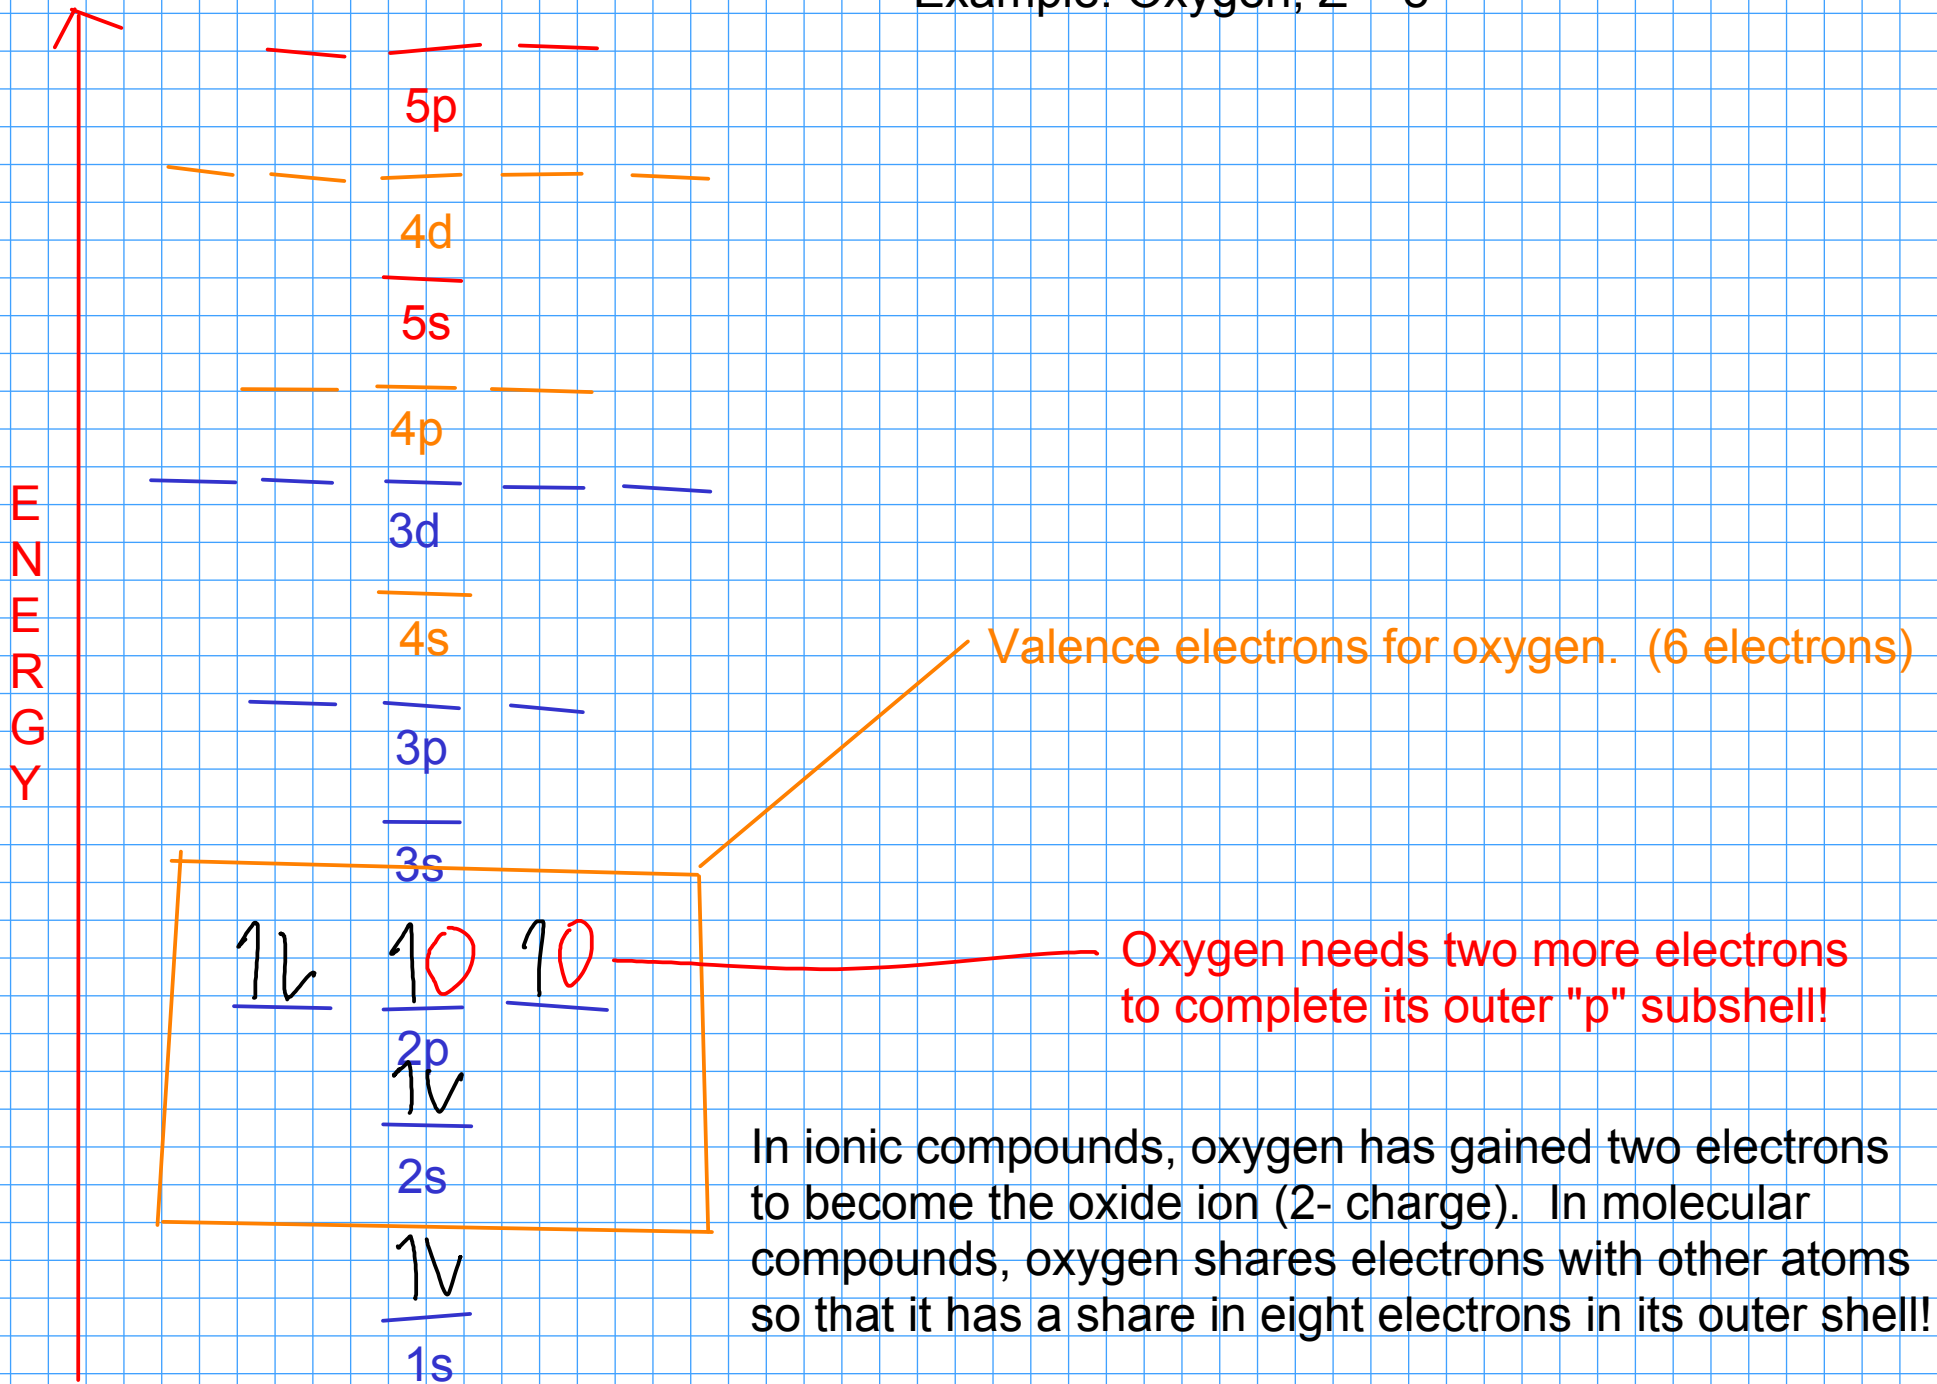 Example: Oxygen, Z = 8
5p
4d
5s
4p
3d
4s
3p
3s
2p
2s
1s
E
N
E
R
G
Y
Valence electrons for oxygen. (6 electrons)
Oxygen needs two more electrons
to complete its outer "p" subshell!
In ionic compounds, oxygen has gained two electrons
to become the oxide ion (2- charge). In molecular
compounds, oxygen shares electrons with other atoms
so that it has a share in eight electrons in its outer shell!